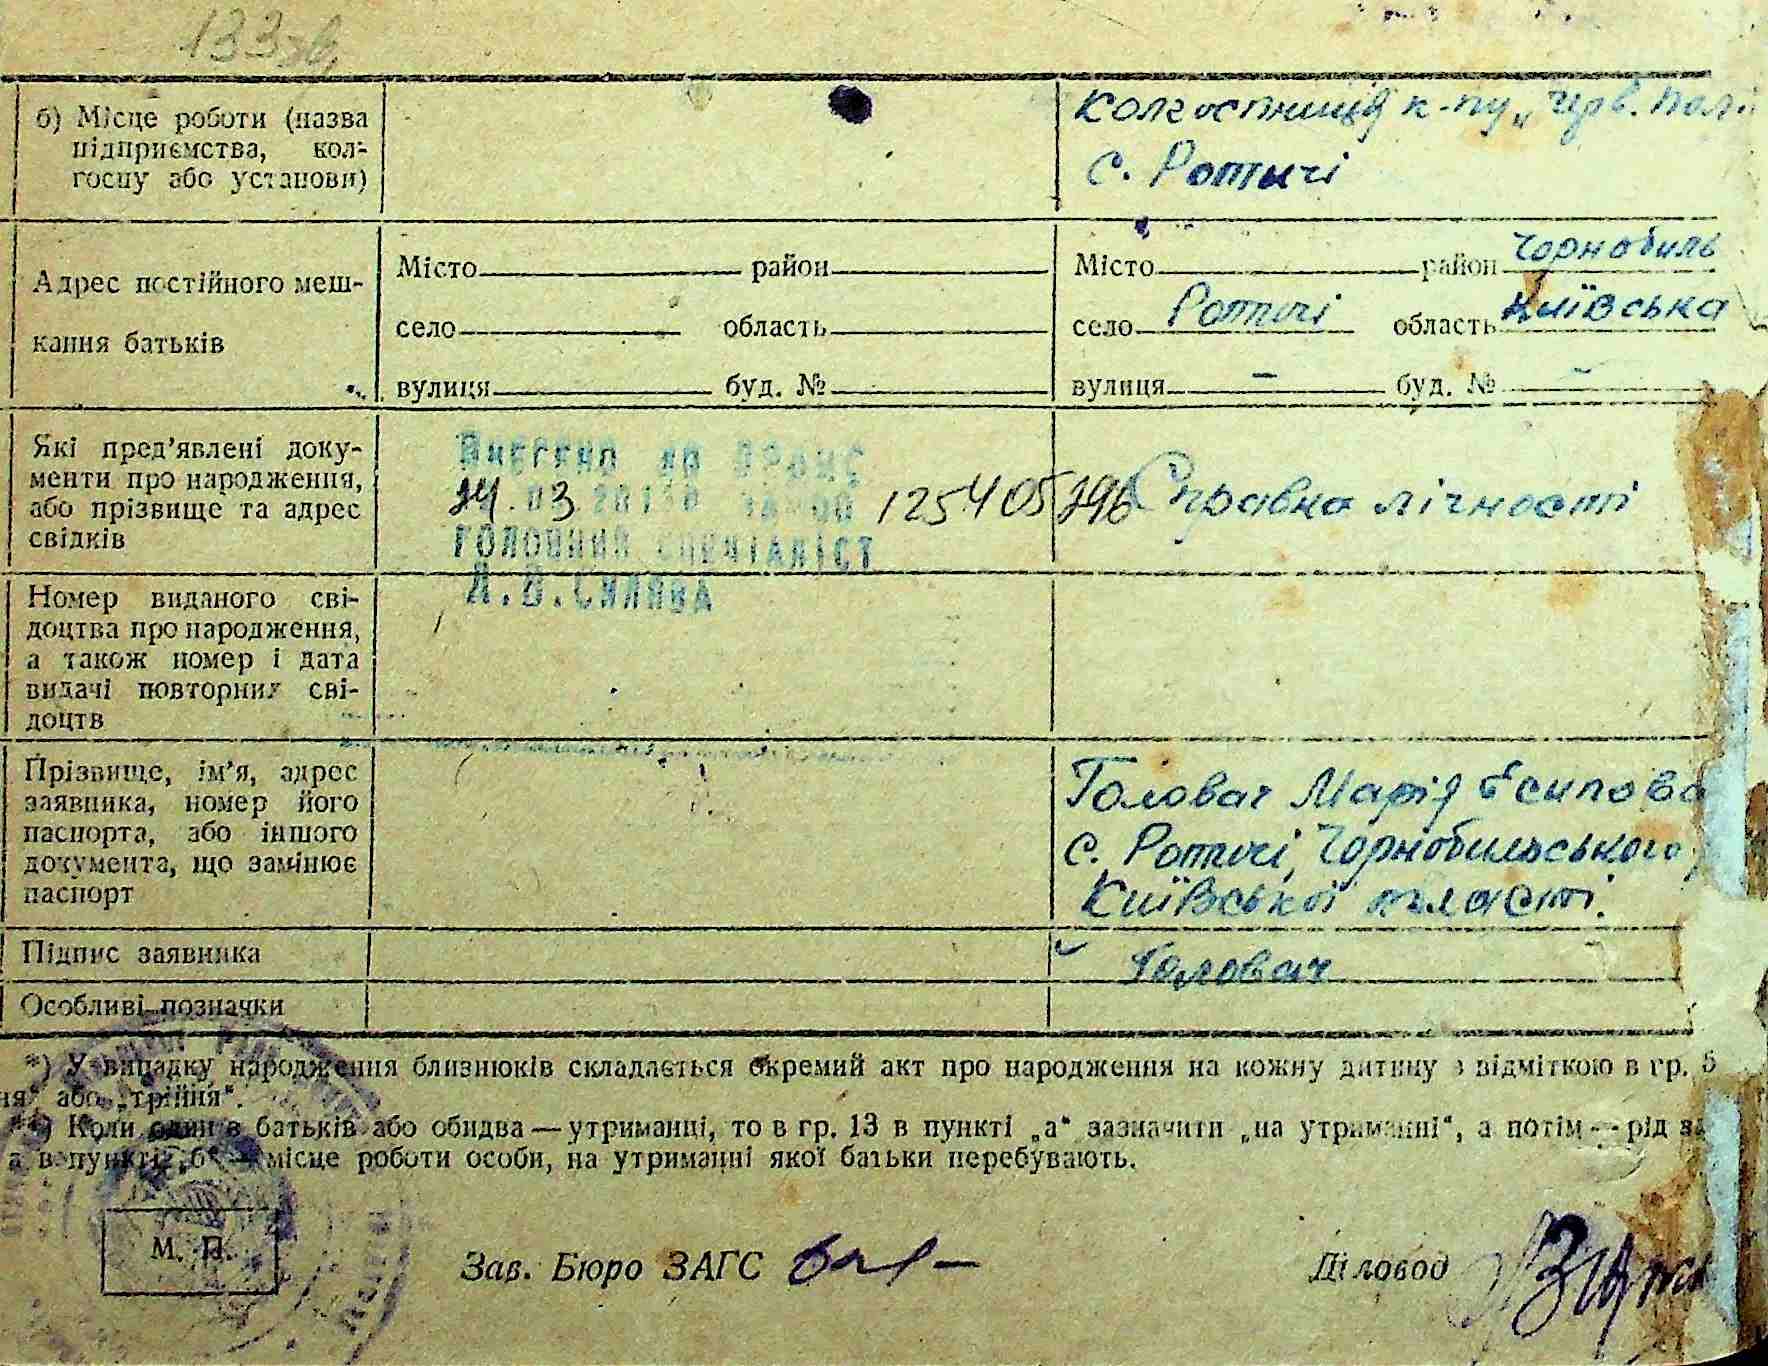 133 зв.
б) Місце роботи (назва підприємства, колгоспу або установи)
Колгоспниця к-пу „Чрв. Пол.
с. Ротичі
Адрес постійного мешкання батьків
Місто район
село область
вулиця буд. №
Місто район Чорнобиль
село Ротичі область Київська
вулиця – буд. № –
Які пред'явлені документи про народження, або прізвище та адрес свідків
Внесено до ДРАЦС
24.03.
125405296
ГОЛОВНИЙ СПЕЦІАЛІСТ
Справка лічності
Номер виданого свідоцтва про народження, а також номер і дата видачі повторних свідоцтв
Прізвище, ім'я, адрес заявника, номер його паспорта, або іншого документа, що замінює паспорт
Головач Марія Єсипова
с. Ротичі, Чорнобильського,
Київської області.
Підпис заявника
Головач
Особливі позначки
*) У випадку народження близнюків складається окремий акт про народження на кожну дитину з відміткою в гр. 5
ня“ або „трійня“.
**) Коли один з батьків або обидва — утриманці, то в гр. 13 в пункті „а“ зазначити „на утриманні“, а потім — рід за
а в пункті „б“ — місце роботи особи, на утриманні якої батьки перебувають.
М. П.
Зав. Бюро ЗАГС
Діловод